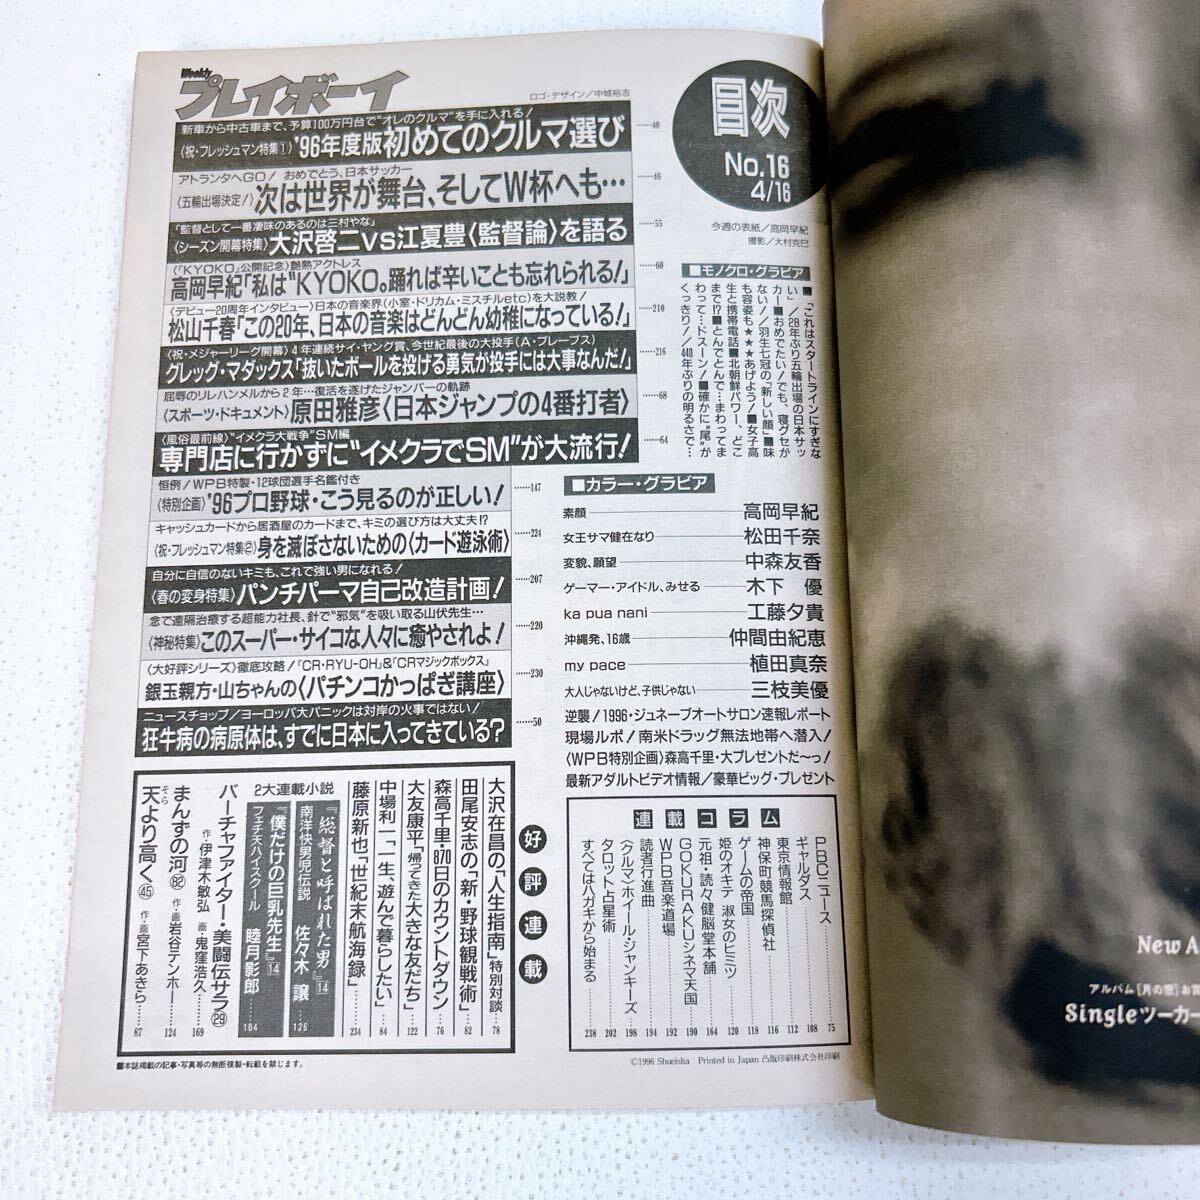 Weekly
プレイボーイ
ロゴ・デザイン／中城裕志
目次
No.16
4/16
今週の表紙／高岡早紀
撮影／大村克巳
新車から中古車まで、予算100万円台で“オレのクルマ”を手に入れる！
〈祝・フレッシュマン特集①〉'96年度版初めてのクルマ選び……40
アトランタへGO！ おめでとう、日本サッカー
〈五輪出場決定！〉次は世界が舞台、そしてW杯へも………46
「監督として一番凄味のあるのは三村やな」
〈シーズン開幕特集〉大沢啓二VS江夏豊〈監督論〉を語る……55
〈『KYOKO』公開記念〉艶熟アクトレス
高岡早紀「私は“KYOKO。踊れば辛いことも忘れられる！」……60
〈デビュー20周年インタビュー〉日本の音楽界（小室・ドリカム・ミスチルetc）を大説教！
松山千春「この20年、日本の音楽はどんどん幼稚になっている！」……210
〈祝・メジャーリーグ開幕〉4年連続サイ・ヤング賞、今世紀最後の大投手（A・ブレーブス）
グレッグ・マダックス「抜いたボールを投げる勇気が投手には大事なんだ！」……216
屈辱のリレハンメルから2年…復活を遂げたジャンパーの軌跡
〈スポーツ・ドキュメント〉原田雅彦〈日本ジャンプの4番打者〉……68
〈風俗最前線〉“イメクラ大戦争”SM編
専門店に行かずに“イメクラでSM”が大流行！……64
恒例！WPB特製・12球団選手名鑑付き
〈特別企画〉'96プロ野球・こう見るのが正しい！……147
キャッシュカードから居酒屋のカードまで、キミの選び方は大丈夫!?
〈祝・フレッシュマン特集②〉身を滅ぼさないための〈カード遊泳術〉……224
自分に自信のないキミも、これで強い男になれる！
〈春の変身特集〉パンチパーマ自己改造計画！……207
念で遠隔治療する超能力社長、針で“邪気”を吸い取る山伏先生…
〈神秘特集〉このスーパー・サイコな人々に癒やされよ！……220
〈大好評シリーズ〉徹底攻略！『CR・RYU-OH』&『CRマジックボックス』
銀玉親方・山ちゃんの〈パチンコかっぱぎ講座〉……230
ニュースチョップ／ヨーロッパ大パニックは対岸の火事ではない！
狂牛病の病原体は、すでに日本に入ってきている？……50
■モノクロ・グラビア
■「これはスタートラインにすぎな
い」／28年ぶり五輪出場の日本サッ
カー■おめでたい！でも、寝グセが
ない！／羽生七冠の「新しい顔」■味
も容姿も★★★あげよう！■女子高
生と携帯電話■北朝鮮パワー、どこ
まで!?■とんでとんで…まわってま
わって…ドスーン！■確かに“尾”が
くっきり／440年ぶりの明るさで…
■カラー・グラビア
素顔――高岡早紀
女王サマ健在なり――松田千奈
変貌、願望――中森友香
ゲーマー・アイドル、みせる――木下 優
ka pua nani――工藤夕貴
沖縄発、16歳――仲間由紀恵
my pace――植田真奈
大人じゃないけど、子供じゃない――三枝美優
逆襲！1996・ジュネーブオートサロン速報レポート
現場ルポ！南米ドラッグ無法地帯へ潜入！
〈WPB特別企画〉森高千里・大プレゼントだ〜っ！
最新アダルトビデオ情報／豪華ビッグ・プレゼント
連載コラム
PBCニュース……75
ギャルダス……108
東京情報館……112
神保町競馬探偵社……116
ゲームの帝国……118
姫のオキテ 淑女のヒミツ……120
元祖・読々健脳堂本舗……164
GOKURAKUシネマ天国……190
WPB音楽道場……192
読者行進曲……194
〈クルマ・ホイールジャンキーズ……198
タロット占星術……202
すべてはハガキから始まる……238
好評連載
大沢在昌の「人生指南」特別対談……78
田尾安志の「新・野球観戦術」……82
森高千里・870日のカウントダウン……76
大友康平「帰ってきた大きな友だち」……122
中場利一「一生、遊んで暮らしたい」……84
藤原新也「世紀末航海録」……234
2大連載小説
『総督と呼ばれた男』⑭
南洋快男児伝説 佐々木 譲……126
『僕だけの巨乳先生』⑭
フェチ天ハイスクール 睦月影郎……104
バーチャファイター・美闘伝サラ㉙
作・伊津木敏弘 画・鬼窪浩久……169
まんずの河82
作・画・岩谷テンホー……124
天より高く㊺
そら
作・画・宮下あきら……87
■本誌掲載の記事・写真等の無断複製・転載を禁じます。
©1996 Shueisha Printed in Japan 凸版印刷株式会社印刷
New A
アルバム［月の窓］お買
Singleツーカー